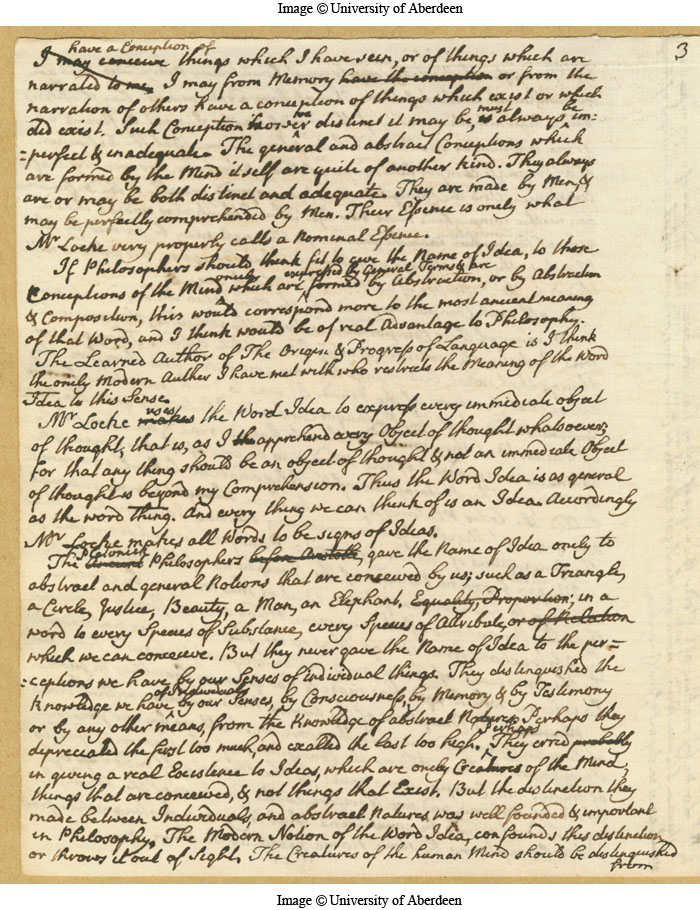 Image © University of Aberdeen
3
have a Conception of
I may conceive things which I have seen, or of things which are
narrated to me. I may from Memory have the conception or from the
narration of others have a conception of things which exist or which
did exist. Such Conception however distinct it may be, is must always be im=
=perfect & inadequate. The general and abstract Conceptions which
are formed by the Mind itself are quite of another kind. They always
are or may be both distinct and adequate. They are made by Men, &
may be perfectly comprehended by Men. Their Essence is onely what
Mr Locke very properly calls a Nominal Essence.
If Philosophers should think fit to give the Name of Idea, to those
onely expressed by General Terms & are
Conceptions of the Mind which are formed by Abstraction, or by Abstraction
& Composition, this would correspond more to the most ancient meaning
of that Word, and I think would be of real Advantage to Philosophy.
The Learned Author of The Origin & Progress of Language is I think
the onely Modern Author I have met with who restricts the Meaning of the Word
Idea to this Sense.
Mr Locke makes uses the Word Idea to express every immediate object
of thought, that is, as I apprehend every Object of thought whatsoever;
for that any thing should be an object of thought & not an immediate Object
of thought is beyond my Comprehension. Thus the Word Idea is as general
as the word Thing. And every thing we can think of is an Idea. Accordingly
Mr Locke makes all Words to be signs of Ideas.
The Ancient Platonick Philosophers before Aristotle, gave the Name of Idea onely to
abstract and general Notions that are conceived by us; such as a Triangle,
a Circle, Justice, Beauty, a Man, an Elephant, Equality, Proportion; in a
word to every Species of Substance, every Species of Attribute, or of Relation
which we can conceive. But they never gave the Name of Idea to the per=
=ceptions we have by our Senses of individual things. They distinguished the
Knowledge we have of Individuals by our Senses, by Consciousness, by Memory & by Testimony
or by any other means, from the Knowledge of abstract Natures. Perhaps they
depreciated the first too much, and exalted the last too high. Perhaps They erred probably
in giving a real Existence to Ideas, which are onely Creatures of the Mind,
things that are conceived, & not things that Exist. But the distinction they
made between Individuals, and abstract Natures was well founded & important
in Philosophy. The Modern Notion of the Word Idea, confounds this distinction
or throws it out of Sight. The Creatures of the human Mind should be distinguished
from
Image © University of Aberdeen